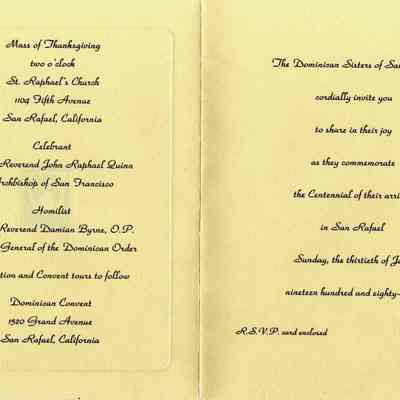 Mass of Thanksgiving
two o'clock
St. Raphael's Church
1104 Fifth Avenue
San Rafael, California
Celebrant
Reverend John Raphael Quinn
Archbishop of San Francisco
Homilist
Reverend Damian Byrne, O.P.
General of the Dominican Order
and Convent tours to follow
Dominican Convent
1520 Grand Avenue
San Rafael, California
The Dominican Sisters of
cordially invite you
to share in their joy
as they commemorate
the Centennial of their
in San Rafael
Sunday, the thirtieth of
nineteen hundred and
R.S.V.P. card enclosed